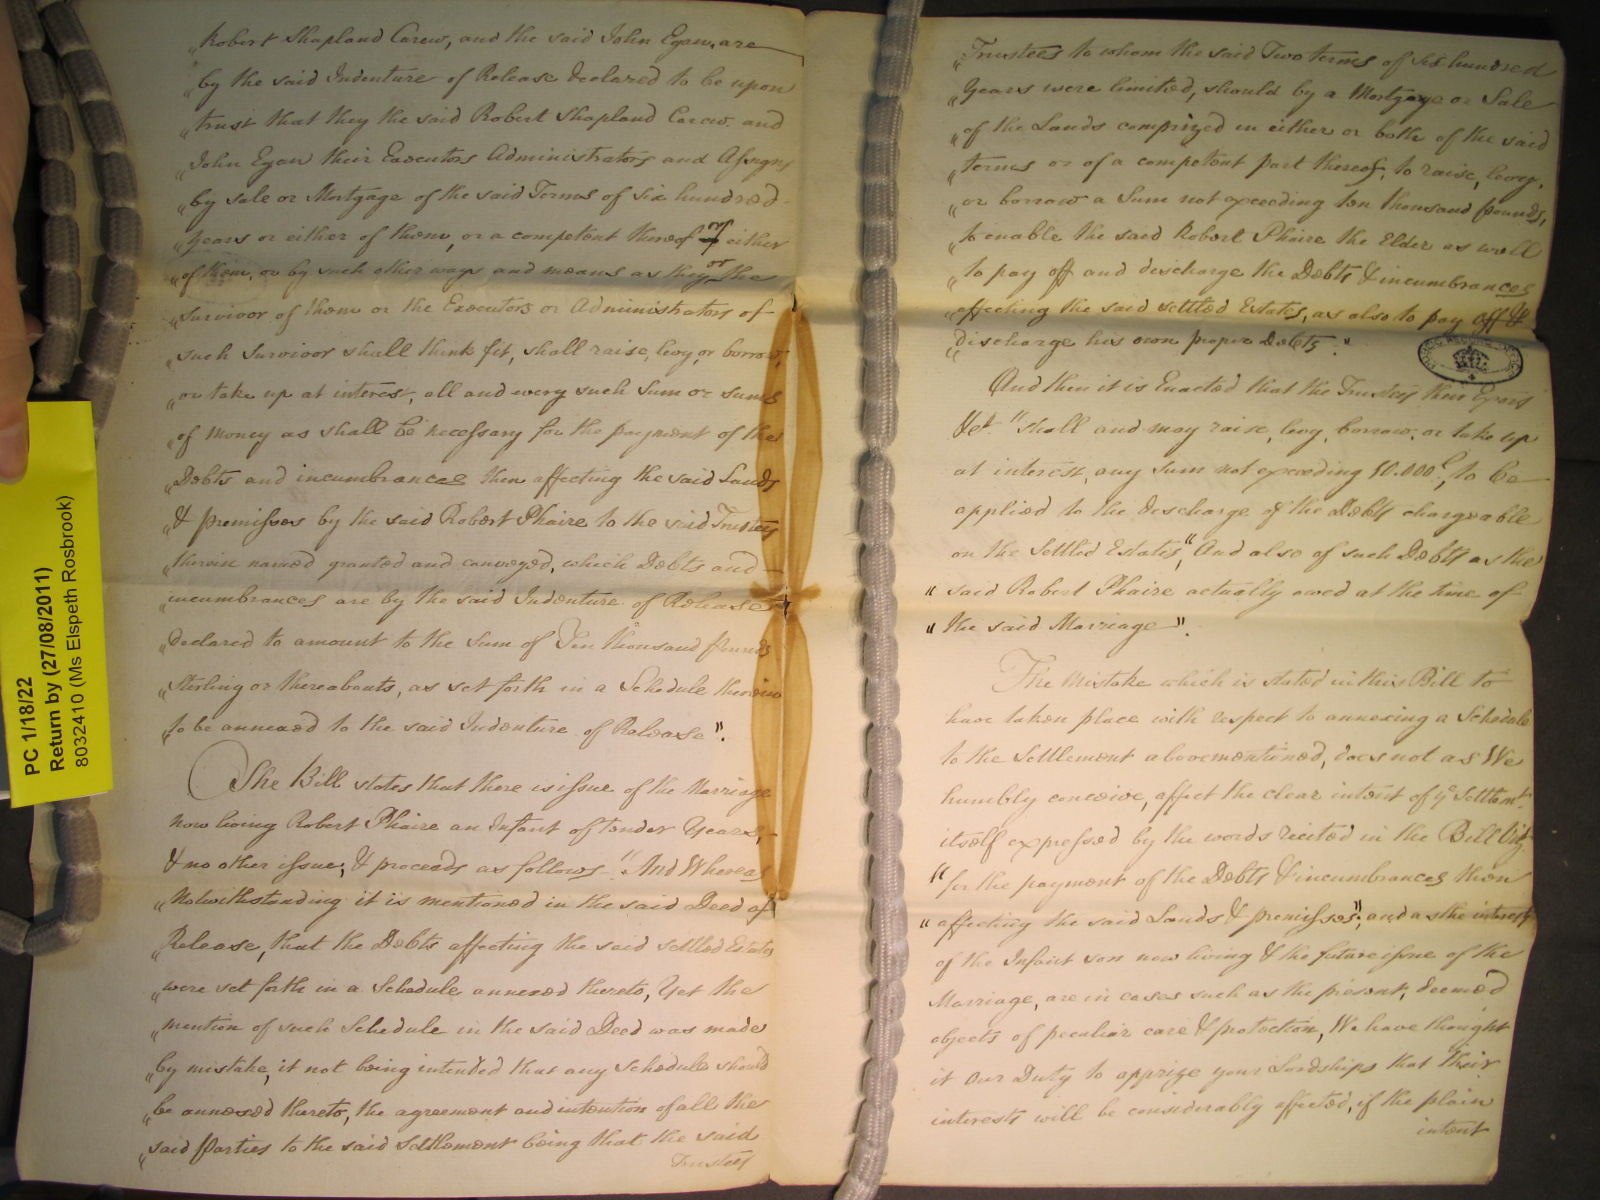 Robert Shapland Carew, and the said John Egan, are
"by the said Indenture of Release declared to be upon
"trust that they the said Robert Shapland Carew and
"John Egan their Executors Administrators and Assigns
"by Sale or Mortgage of the said Terms of Six hundred
"Years or either of them, or a competent thereof or either
"of them, or by such other ways and means as they or the
"Survivor of them or the Executors or Administrators of
"such Survivor shall think fit, shall raise, levy, or borrow,
"or take up at interest, all and every such Sum or sums
"of Money as shall be necessary for the payment of the
"Debts and incumbrances then affecting the said Lands
"& premisses by the said Robert Phaire to the said Trustees
"therein named granted and conveyed, which Debts and
"incumbrances are by the said Indenture of Release
"declared to amount to the Sum of Ten thousand pounds
"Sterling or thereabouts, as set forth in a Schedule therein
"to be annexed to the said Indenture of Release".
The Bill states that there is issue of the Marriage
now living Robert Phaire an Infant of tender Years,
& no other issue; & proceeds as follows "And Whereas
"Notwithstanding it is mentioned in the said Deed of
"Release, that the Debts affecting the said settled Estates
"were set forth in a Schedule annexed thereto, Yet the
"mention of such Schedule in the said Deed was made
"by mistake, it not being intended that any Schedule should
"be annexed thereto, the agreement and intention of all the
"said parties to the said Settlement being that the said
Trustees
"Trustees to whom the said Two terms of six hundred
"Years were limited, should by a Mortgage or Sale
"of the Lands comprized in either or both of the said
"terms or of a competent part thereof, to raise, levy,
"or borrow a Sum not exceeding ten thousand pounds,
"to enable the said Robert Phaire the Elder as well
"to pay off and discharge the Debts & incumbrances
"affecting the said settled Estates, as also to pay off &
"discharge his own proper Debts."
And then it is Enacted that the Trustees their Exors
&ct. "shall and may raise, levy, borrow, or take up
at interest, any Sum not exceeding 10.000£ to be
applied to the discharge of the Debts chargeable
on the Settled Estates," And also of such Debts as the
" said Robert Phaire actually owed at the time of
" the said Marriage".
The Mistake which is stated in this Bill to
have taken place with respect to annexing a Schedule
to the Settlement abovementioned, does not as We
humbly conceive, affect the clear intent of ye Settlemt.
itself expressed by the words recited in the Bill Vizt.
" for the payment of the Debts & incumbrances then
" affecting the said Lands & premisses"; and as the interests
of the Infant son now living & the future issue of the
Marriage, are in cases such as the present, deemed
objects of peculiar care & protection, We have thought
it our Duty to apprize your Lordships that their
interests will be considerably affected, if the plain
intent
PC 1/18/22
Return by (27/08/2011)
8032410 (Ms Elspeth Rosbrook)